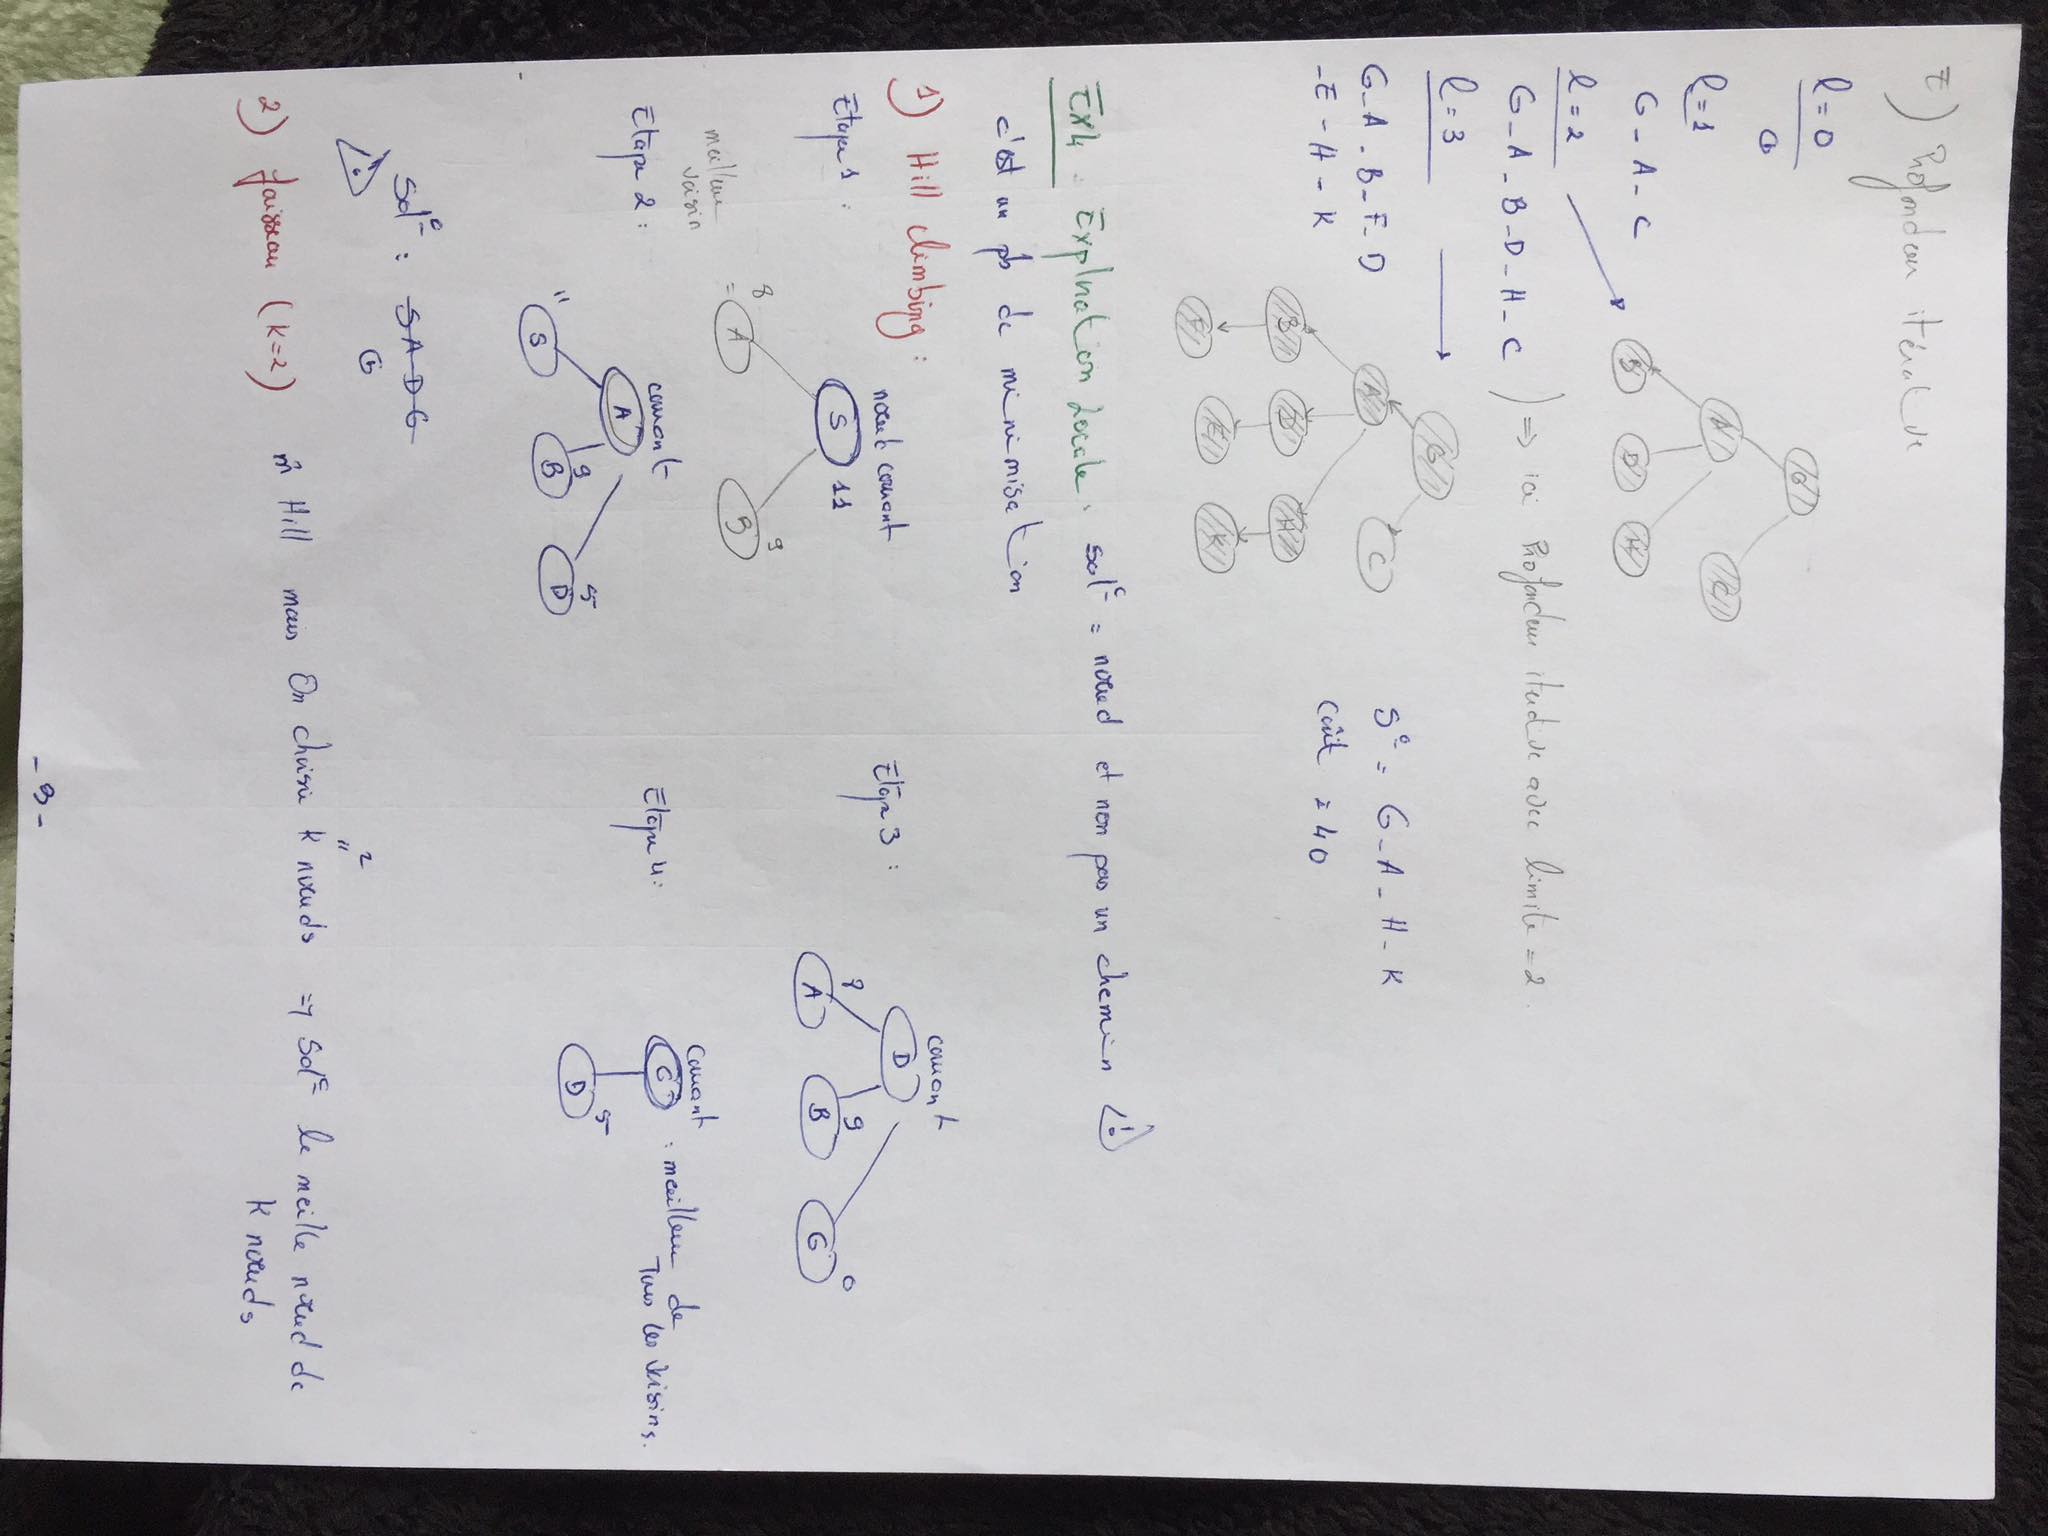 7) Profondeur itérative
l=0
G
l=1
G - A - C
l=2
G - A - B - D - H - C ) => ici Profondeur itérative avec limite = 2.
l=3
G - A - B - F - D
- E - H - K
G
A
C
B
D
H
G
A
C
B
D
H
F
E
K
S° = G - A - H - K
Coût = 40
Ex4 : Exploration Locale : sol° = noeud et non pas un chemin !
c'est un pb de minimisation
1) Hill climbing :
Etape 1 :
noeud courant
S 11
8 A
B 9
meilleur voisin
Etape 2 :
courant
A
11 S
B 9
D 5
Etape 3 :
courant
D
A 8
B 9
G 0
Etape 4 :
courant : meilleur de
Tous les voisins.
G
D 5
! Sol° : S A D G
G
2) faisceau (k=2) m̂ Hill mais On choisie k noeuds => Sol° le meille noeud de
"2
k noeuds
- 9 -